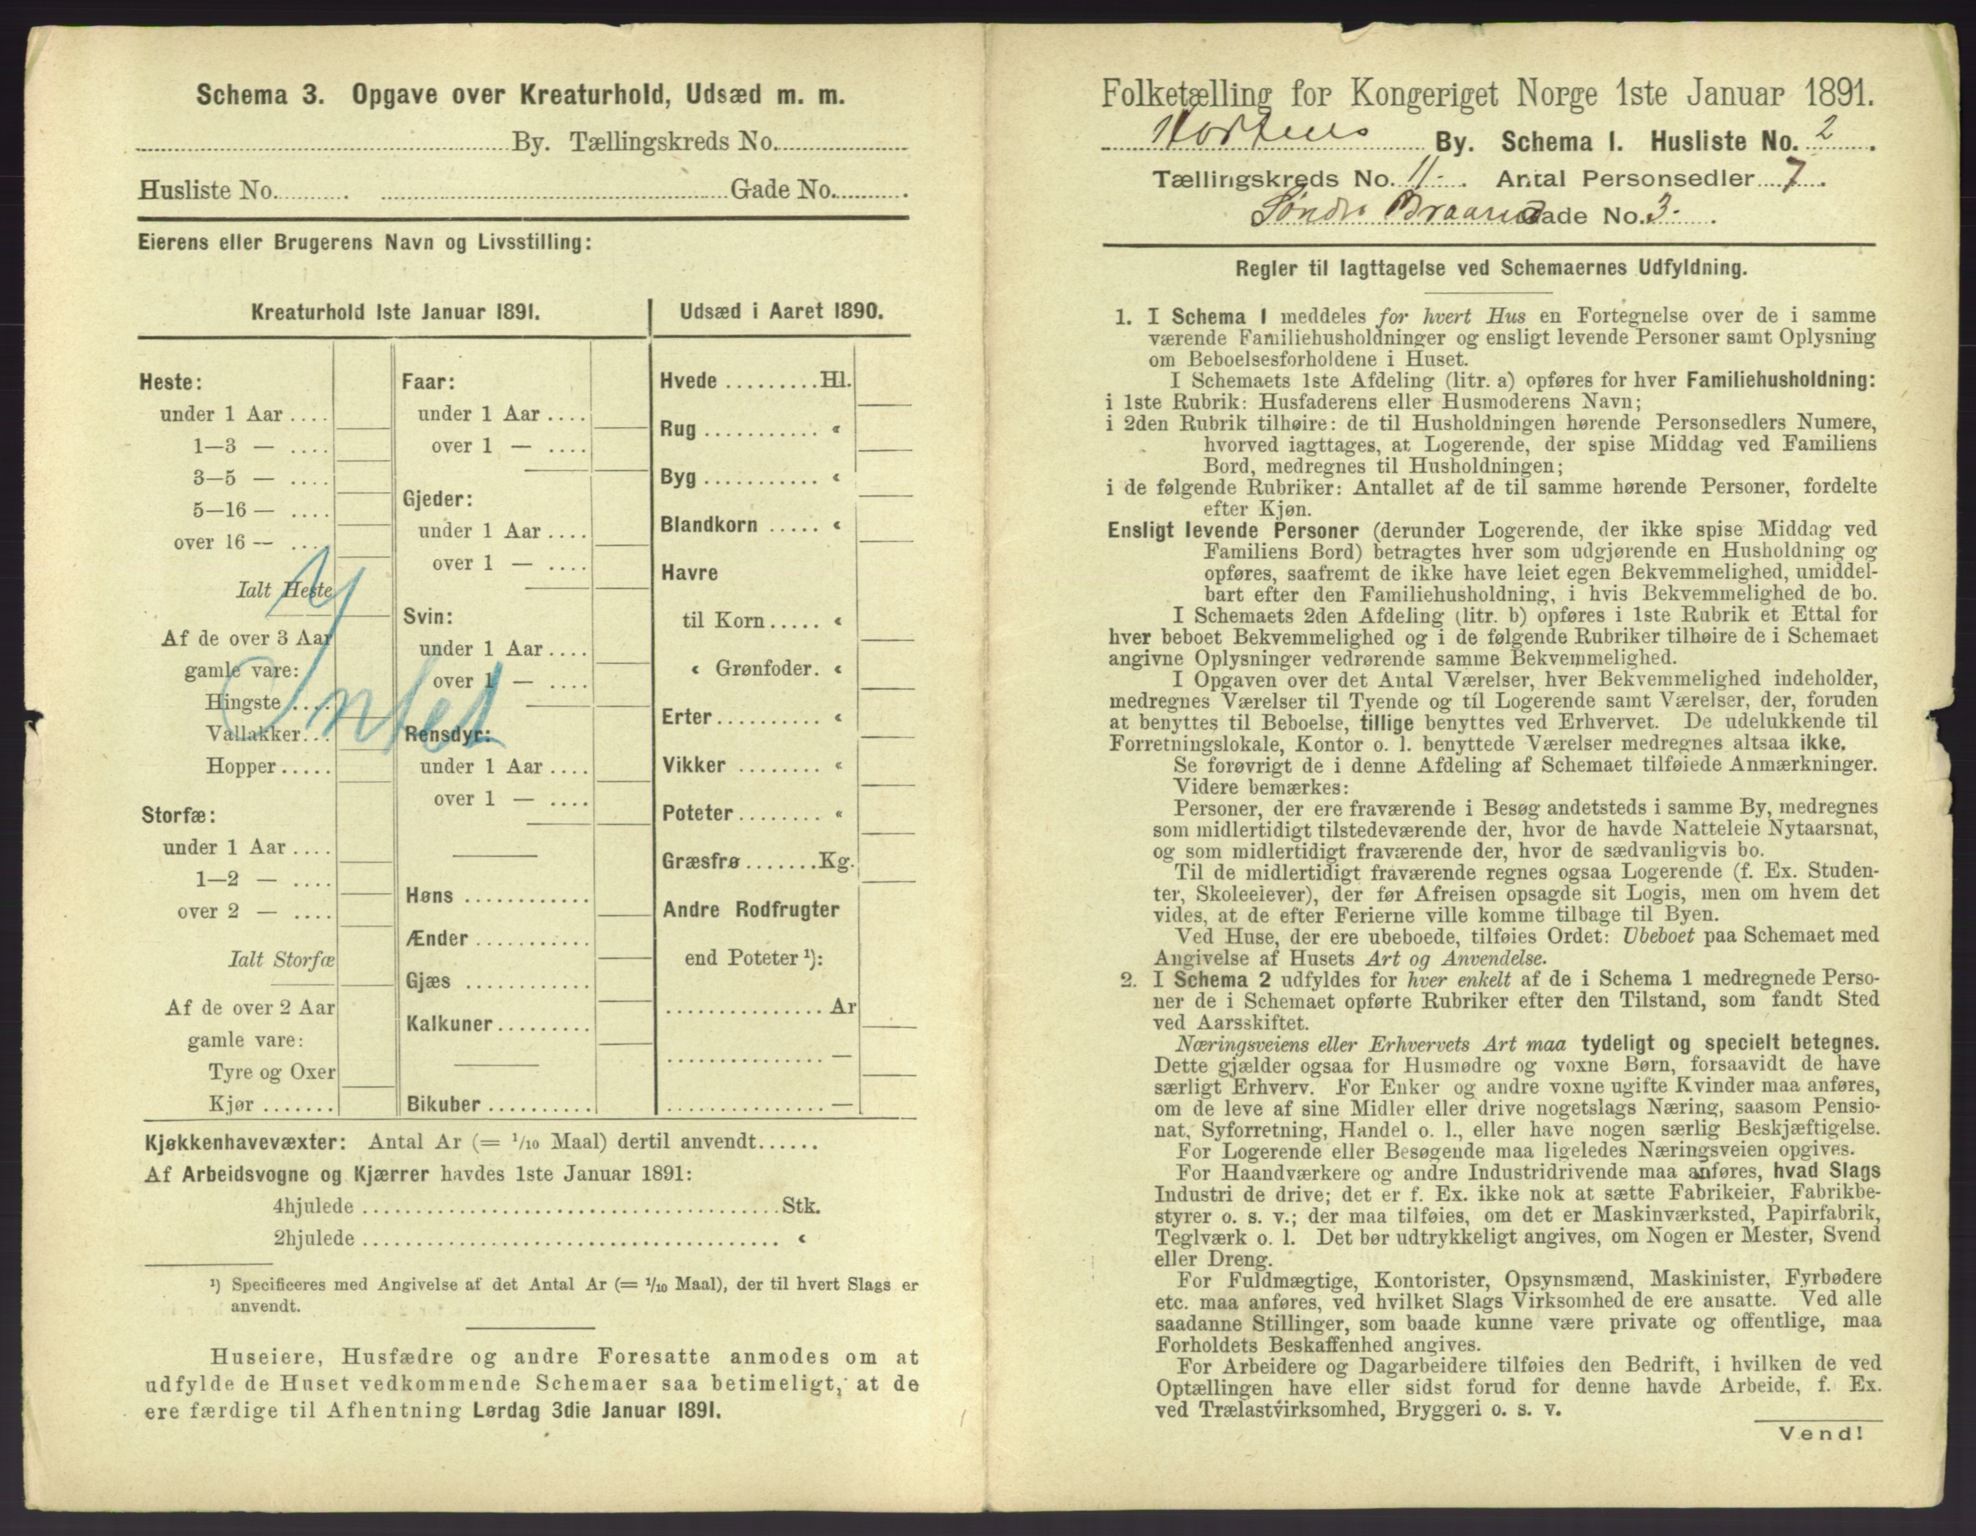 Schema 3. Opgave over Kreaturhold, Udsæd m. m.
By. Tællingskreds No.
Husliste No. Gade No.
Eierens eller Brugerens Navn og Livsstilling:
Kreaturhold 1ste Januar 1891.
Heste:
under 1 Aar ....
1—3 — ....
3—5 — ....
5—16 — ....
over 16 — ....
Ialt Heste
Af de over 3 Aar
gamle vare:
Hingste ....
Vallakker...
Hopper.....
Storfæ:
under 1 Aar ....
1—2 — ....
over 2 — ....
Ialt Storfæ
Af de over 2 Aar
gamle vare:
Tyre og Oxer
Kjør .......
Intet
Faar:
under 1 Aar ....
over 1 — ....
Gjeder:
under 1 Aar ....
over 1 — ....
Svin:
under 1 Aar ....
over 1 — ....
Rensdyr:
under 1 Aar ....
over 1 — ....
Høns ............
Ænder ...........
Gjæs ............
Kalkuner.........
Bikuber ..........
Udsæd i Aaret 1890.
Hvede .........Hl.
Rug ........... «
Byg ........... «
Blandkorn ..... «
Havre
til Korn..... «
« Grønfoder. «
Erter.......... «
Vikker ........ «
Poteter........ «
Græsfrø .......Kg.
Andre Rodfrugter
end Poteter ¹):
............... Ar
............... —
............... —
Kjøkkenhavevæxter: Antal Ar (= 1/10 Maal) dertil anvendt......
Af Arbeidsvogne og Kjærrer havdes 1ste Januar 1891:
4hjulede ........................................Stk.
2hjulede ........................................ «
¹) Specificeres med Angivelse af det Antal Ar (= 1/10 Maal), der til hvert Slags er
anvendt.
Huseiere, Husfædre og andre Foresatte anmodes om at
udfylde de Huset vedkommende Schemaer saa betimeligt, at de
ere færdige til Afhentning Lørdag 3die Januar 1891.
Folketælling for Kongeriget Norge 1ste Januar 1891.
Hortens By. Schema I. Husliste No. 2.
Tællingskreds No. 11. Antal Personsedler 7.
Søndre Braarud Gade No. 3.
Regler til Iagttagelse ved Schemaernes Udfyldning.
1. I Schema I meddeles for hvert Hus en Fortegnelse over de i samme
værende Familiehusholdninger og ensligt levende Personer samt Oplysning
om Beboelsesforholdene i Huset.
I Schemaets 1ste Afdeling (litr. a) opføres for hver Familiehusholdning:
i 1ste Rubrik: Husfaderens eller Husmoderens Navn;
i 2den Rubrik tilhøire: de til Husholdningen hørende Personsedlers Numere,
hvorved iagttages, at Logerende, der spise Middag ved Familiens
Bord, medregnes til Husholdningen;
i de følgende Rubriker: Antallet af de til samme hørende Personer, fordelte
efter Kjøn.
Ensligt levende Personer (derunder Logerende, der ikke spise Middag ved
Familiens Bord) betragtes hver som udgjørende en Husholdning og
opføres, saafremt de ikke have leiet egen Bekvemmelighed, umiddel-
bart efter den Familiehusholdning, i hvis Bekvemmelighed de bo.
I Schemaets 2den Afdeling (litr. b) opføres i 1ste Rubrik et Ettal for
hver beboet Bekvemmelighed og i de følgende Rubriker tilhøire de i Schemaet
angivne Oplysninger vedrørende samme Bekvemmelighed.
I Opgaven over det Antal Værelser, hver Bekvemmelighed indeholder,
medregnes Værelser til Tyende og til Logerende samt Værelser, der, foruden
at benyttes til Beboelse, tillige benyttes ved Erhvervet. De udelukkende til
Forretningslokale, Kontor o. l. benyttede Værelser medregnes altsaa ikke.
Se forøvrigt de i denne Afdeling af Schemaet tilføiede Anmærkninger.
Videre bemærkes:
Personer, der ere fraværende i Besøg andetsteds i samme By, medregnes
som midlertidigt tilstedeværende der, hvor de havde Natteleie Nytaarsnat,
og som midlertidigt fraværende der, hvor de sædvanligvis bo.
Til de midlertidigt fraværende regnes ogsaa Logerende (f. Ex. Studen-
ter, Skoleelever), der før Afreisen opsagde sit Logis, men om hvem det
vides, at de efter Ferierne ville komme tilbage til Byen.
Ved Huse, der ere ubeboede, tilføies Ordet: Ubeboet paa Schemaet med
Angivelse af Husets Art og Anvendelse.
2. I Schema 2 udfyldes for hver enkelt af de i Schema 1 medregnede Perso-
ner de i Schemaet opførte Rubriker efter den Tilstand, som fandt Sted
ved Aarsskiftet.
Næringsveiens eller Erhvervets Art maa tydeligt og specielt betegnes.
Dette gjælder ogsaa for Husmødre og voxne Børn, forsaavidt de have
særligt Erhverv. For Enker og andre voxne ugifte Kvinder maa anføres,
om de leve af sine Midler eller drive nogetslags Næring, saasom Pensio-
nat, Syforretning, Handel o. l., eller have nogen særlig Beskjæftigelse.
For Logerende eller Besøgende maa ligeledes Næringsveien opgives.
For Haandværkere og andre Industridrivende maa anføres, hvad Slags
Industri de drive; det er f. Ex. ikke nok at sætte Fabrikeier, Fabrikbe-
styrer o. s. v.; der maa tilføies, om det er Maskinværksted, Papirfabrik,
Teglværk o. l. Det bør udtrykkeligt angives, om Nogen er Mester, Svend
eller Dreng.
For Fuldmægtige, Kontorister, Opsynsmænd, Maskinister, Fyrbødere
etc. maa anføres, ved hvilket Slags Virksomhed de ere ansatte. Ved alle
saadanne Stillinger, som baade kunne være private og offentlige, maa
Forholdets Beskaffenhed angives.
For Arbeidere og Dagarbeidere tilføies den Bedrift, i hvilken de ved
Optællingen have eller sidst forud for denne havde Arbeide, f. Ex.
ved Trælastvirksomhed, Bryggeri o. s. v.
Vend!